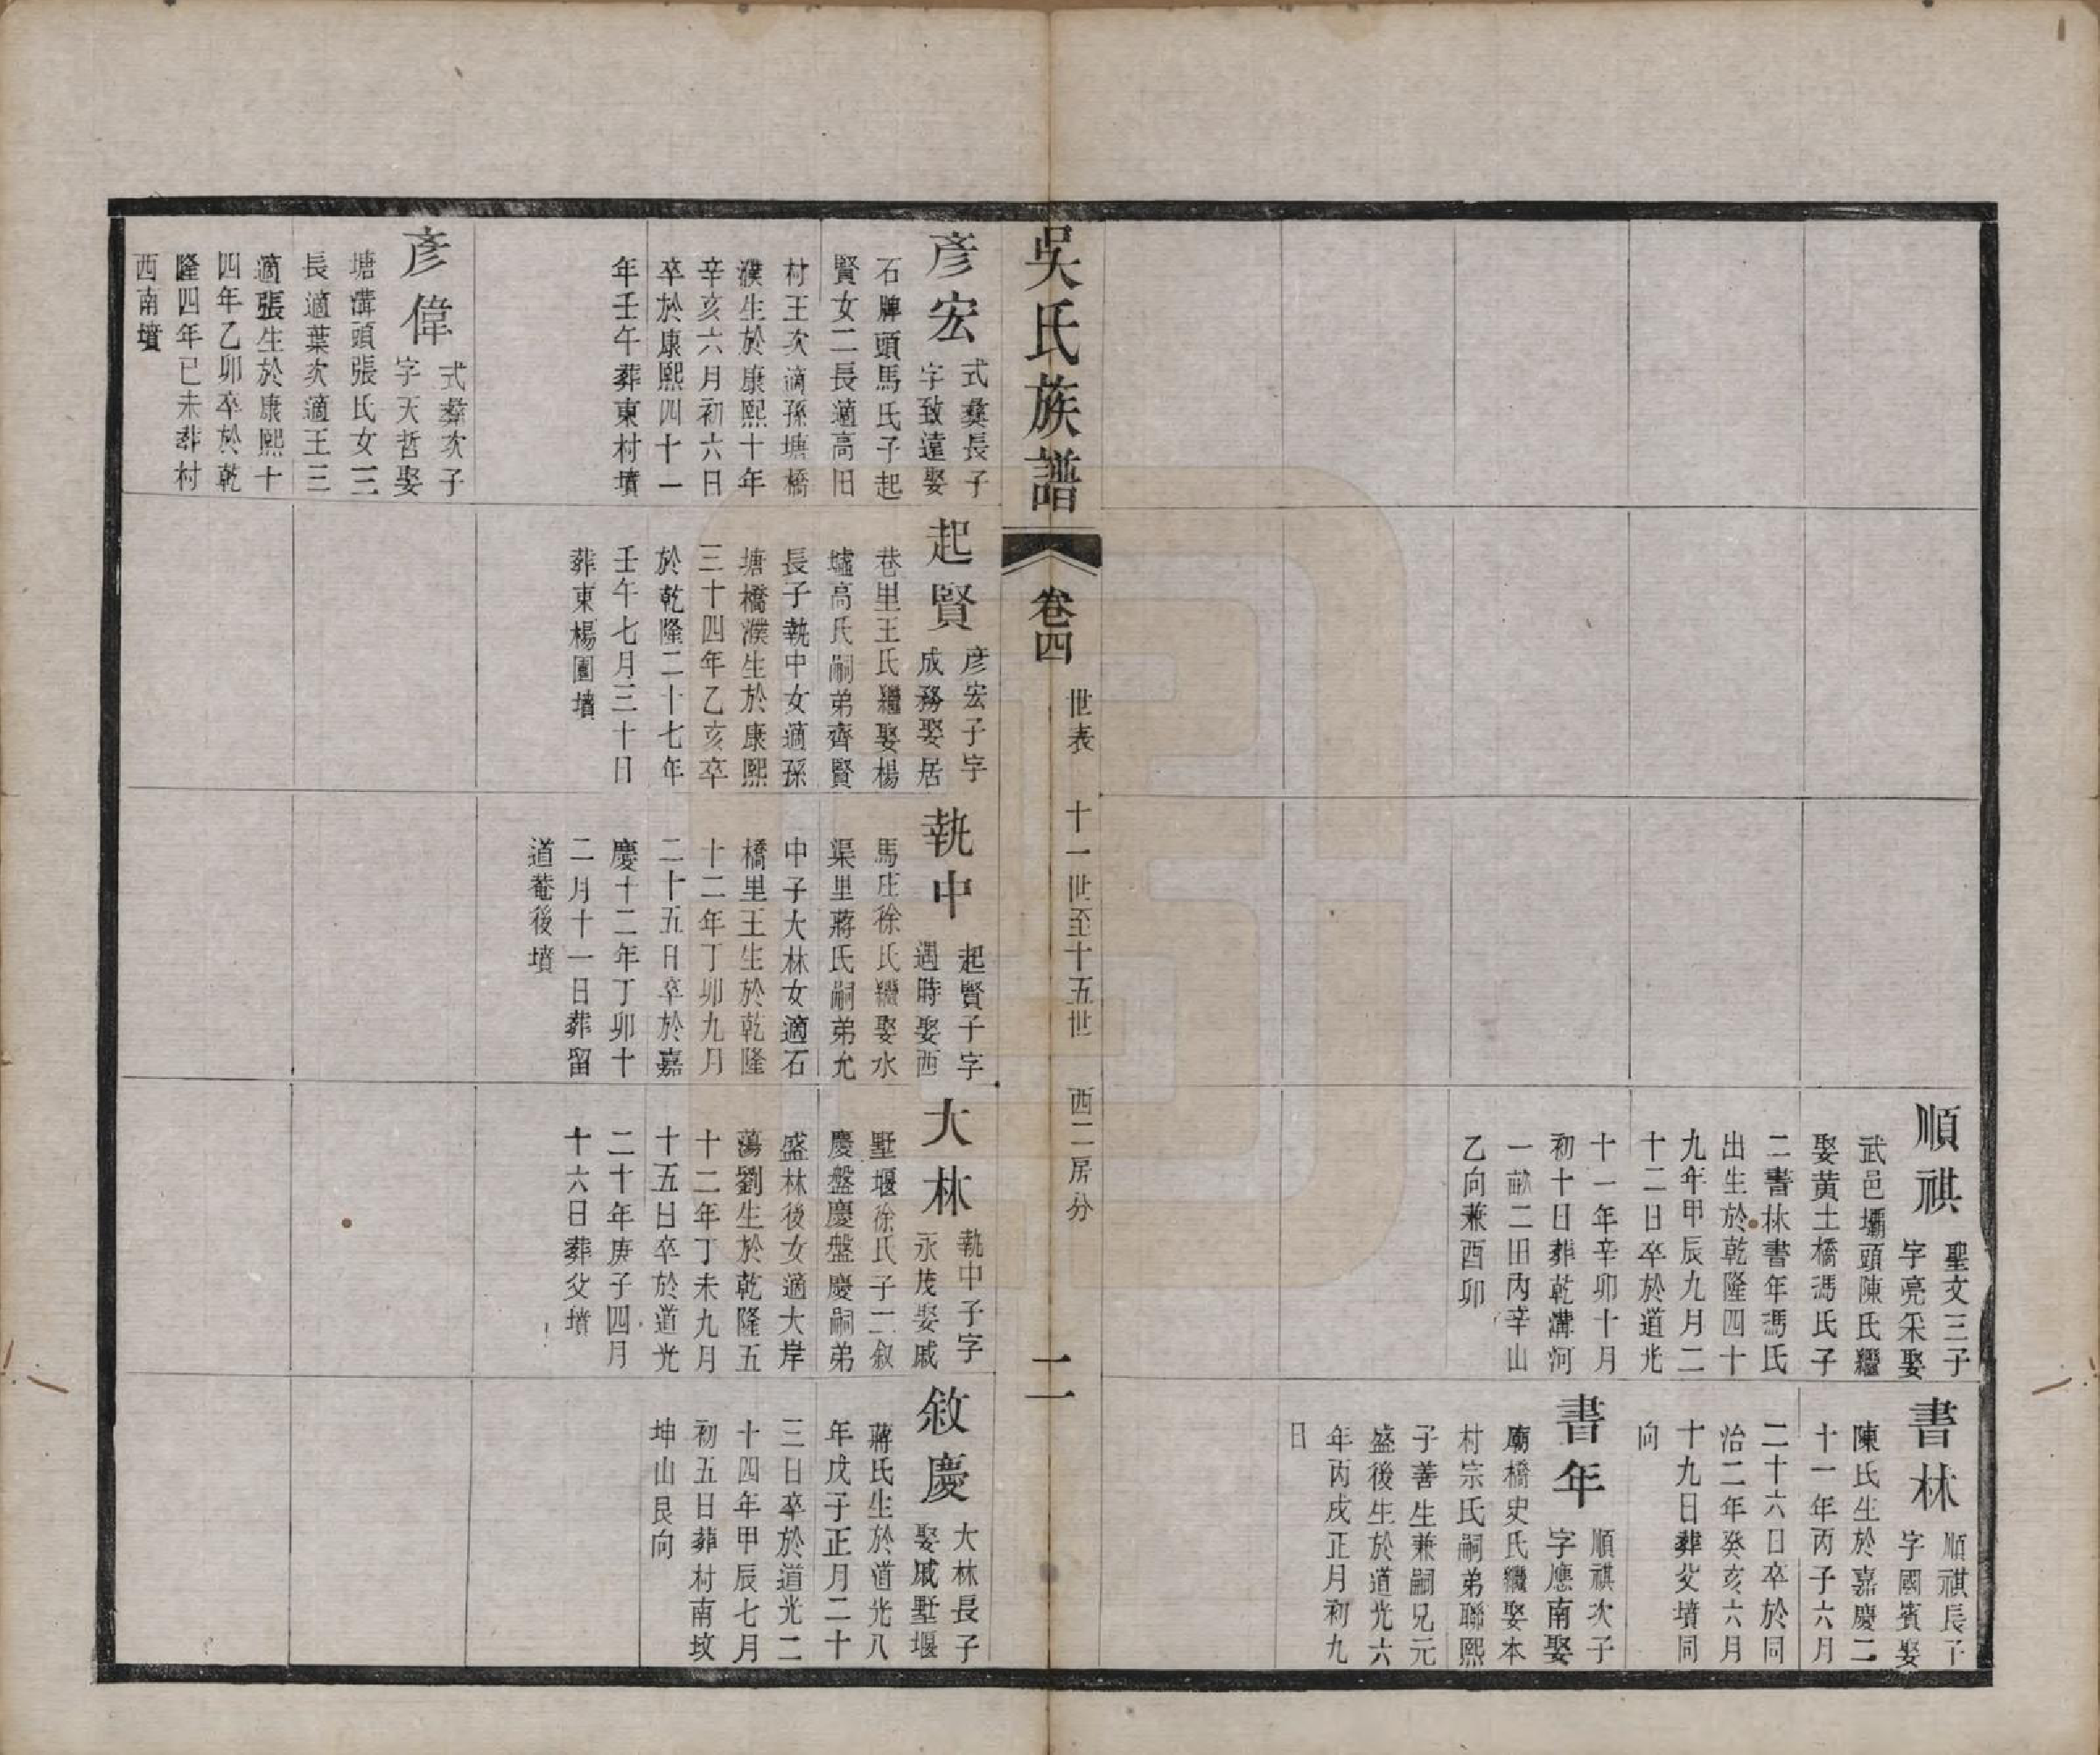 順祺 聖文三子
字亮采娶
武邑壩頭陳氏繼
娶黃土橋馮氏子
二書林書年馮氏
出生於乾隆四十
九年甲辰九月二
十二日卒於道光
十一年辛卯十月
初十日葬乾溝河
一畝二田丙辛山
乙向兼酉卯
書林 順祺長子
字國賓娶
陳氏生於嘉慶二
十一年丙子六月
二十六日卒於同
治二年癸亥六月
十九日葬父墳同
向
書年 順祺次子
字應南娶
廟橋史氏繼娶本
村宗氏嗣弟聯熙
子善生兼嗣兄元
盛後生於道光六
年丙戌正月初九
日
吳氏族譜 卷四 世表 十一世至十五世 西二房分 二
彥宏 式彝長子
字致遠娶
石牌頭馬氏子起
賢女二長適高田
村王次適孫塘橋
濮生於康熙十年
辛亥六月初六日
卒於康熙四十一
年壬午葬東村墳
彥偉 式彝次子
字天哲娶
塘溝頭張氏女三
長適葉次適王三
適張生於康熙十
四年乙卯卒於乾
隆四年己未葬村
西南墳
起賢 彥宏子字
成務娶居
巷里王氏繼娶楊
墟高氏嗣弟齊賢
長子執中女適孫
塘橋濮生於康熙
三十四年乙亥卒
於乾隆二十七年
壬午七月三十日
葬東楊園墳
執中 起賢子字
遇時娶西
馬庄徐氏繼娶水
渠里蔣氏嗣弟允
中子大林女適石
橋里王生於乾隆
十二年丁卯九月
二十五日卒於嘉
慶十二年丁卯十
二月十一日葬留
道菴後墳
大林 執中子字
永茂娶戚
墅堰徐氏子二敘
慶盤慶盤慶嗣弟
盛林後女適大岸
蕩劉生於乾隆五
十二年丁未九月
十五日卒於道光
二十年庚子四月
十六日葬父墳
敘慶 大林長子
娶戚墅堰
蔣氏生於道光八
年戊子正月二十
三日卒於道光二
十四年甲辰七月
初五日葬村南坟
坤山艮向